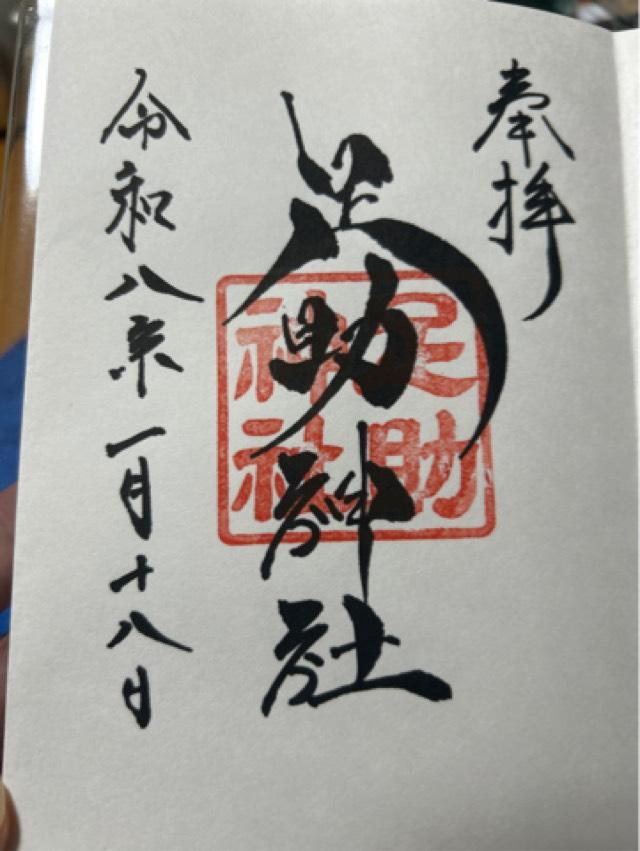 奉拝
足助神社
足助
神社
令和八年一月十八日